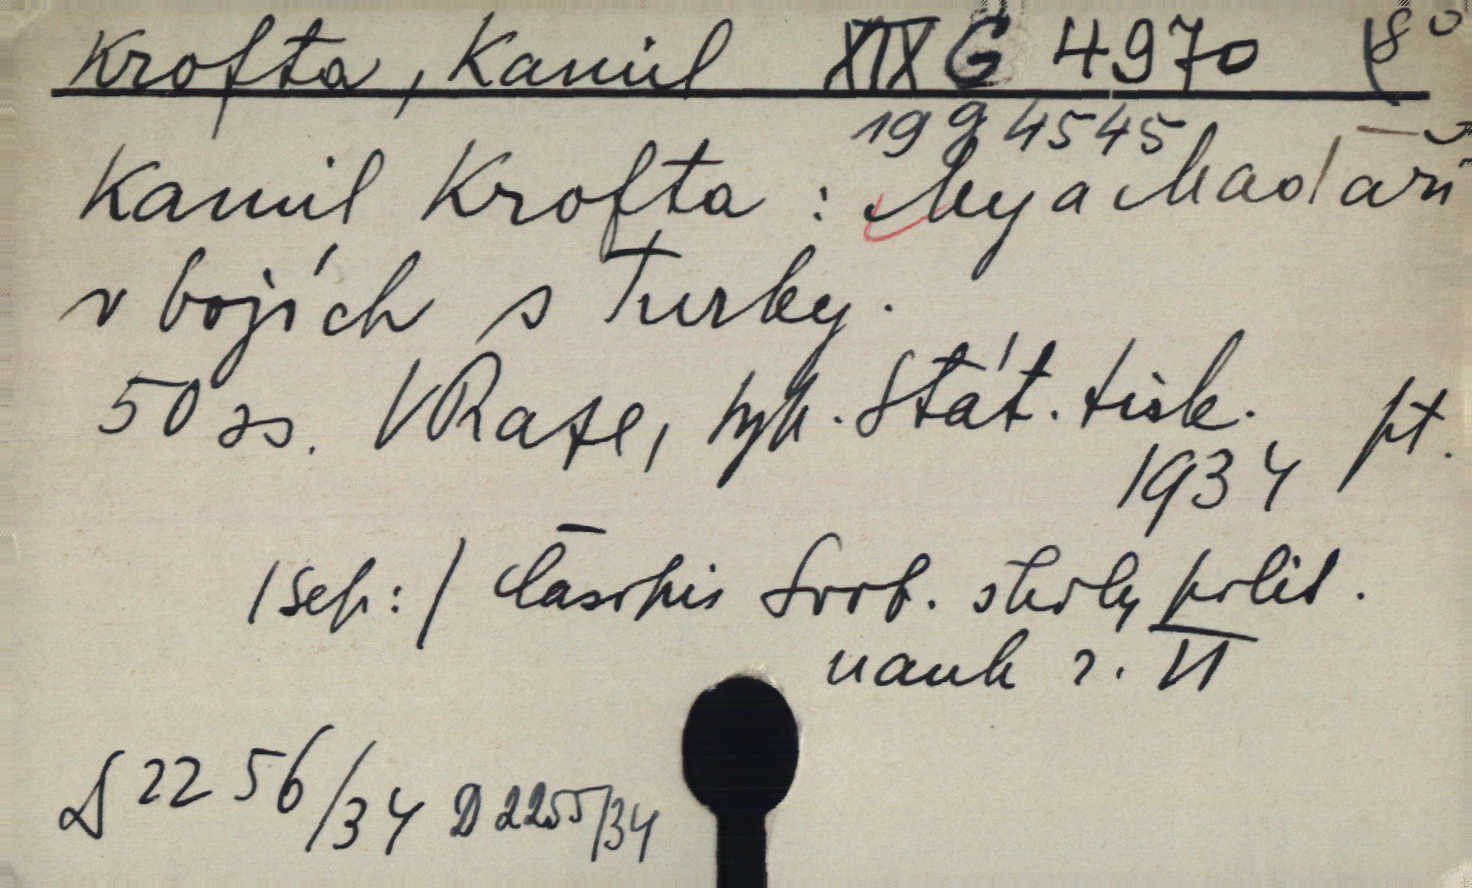 Krofta, Kamil XIX G 4970 8°
19 g 4545
Kamil Krofta: My a Maďaři
v bojích s Turky.
50 ss. V Praze, typ. Stát. tisk.
1934 pt.
/Sep:/ Časopis Svob. školy polit.
nauk r. VI
D 2256/34 D 2255/34